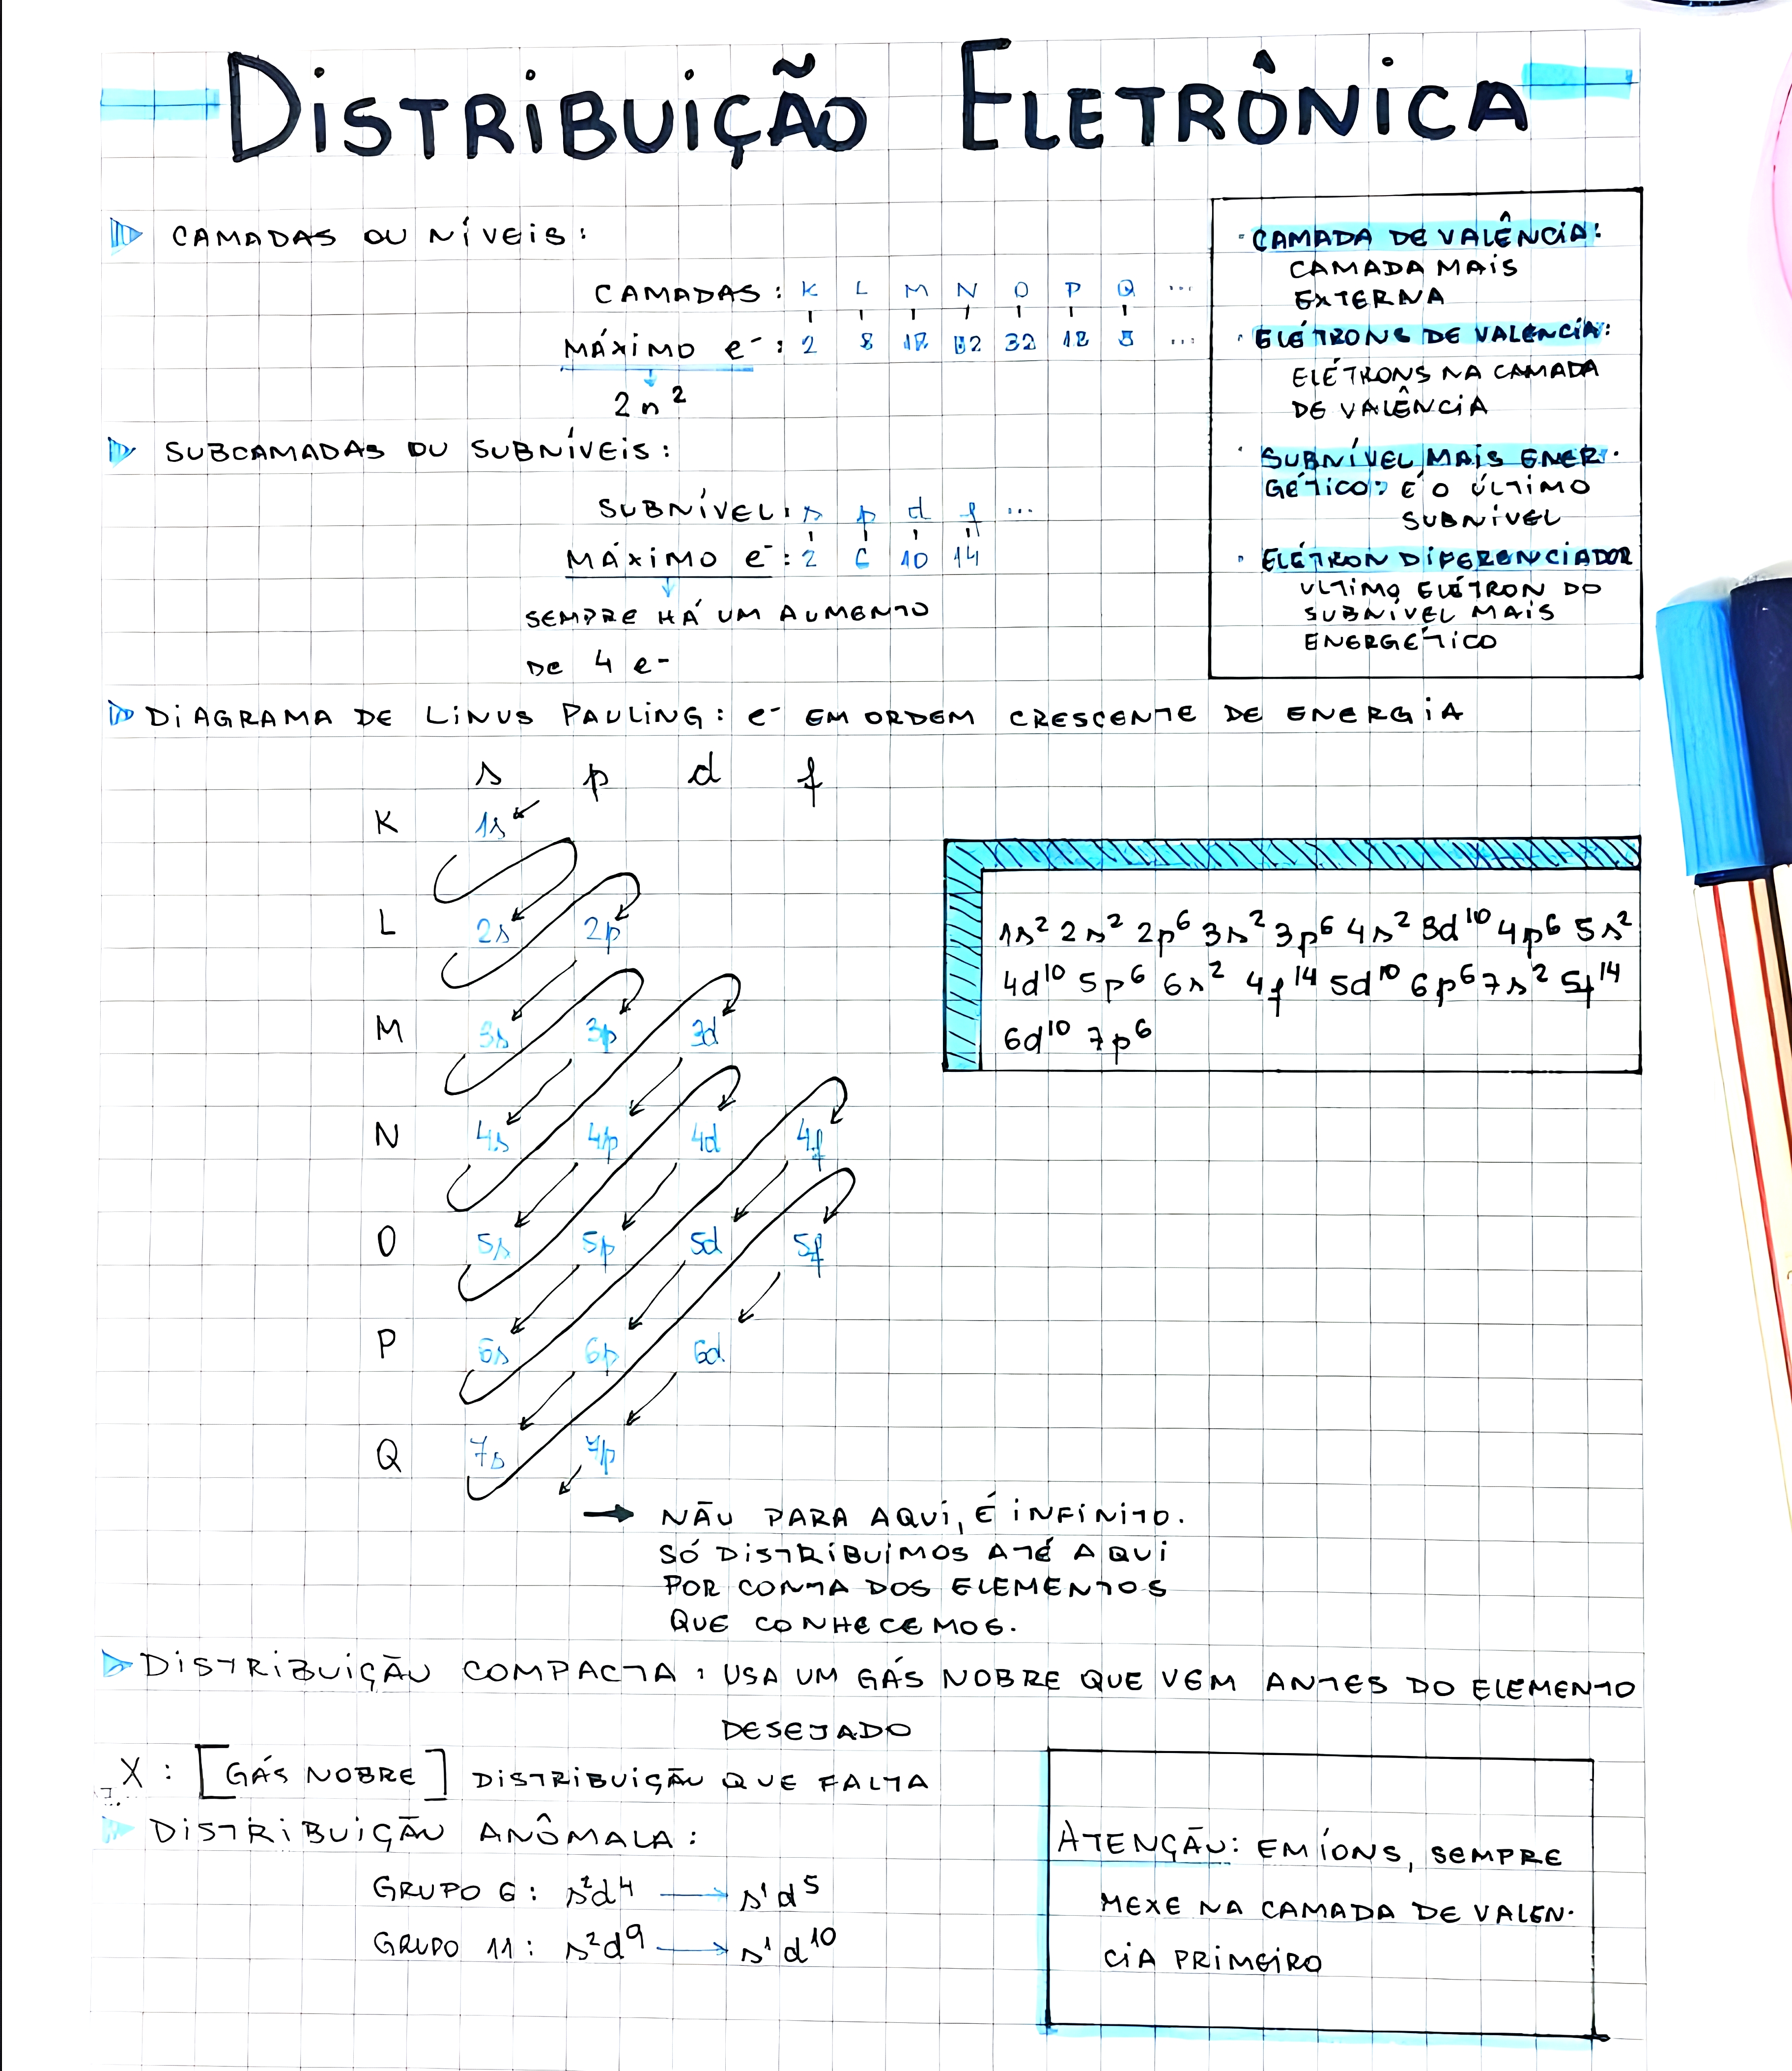 DISTRIBUIÇÃO ELETRÔNICA
CAMADAS OU NÍVEIS:
CAMADAS: K L M N O P Q ...
MÁXIMO e⁻: 2 8 18 32 32 18 8 ...
2n²
SUBCAMADAS OU SUBNÍVEIS:
SUBNÍVEL: s p d f ...
MÁXIMO e⁻: 2 6 10 14
SEMPRE HÁ UM AUMENTO
DE 4 e-
· CAMADA DE VALÊNCIA:
CAMADA MAIS
EXTERNA
· ELÉTRONS DE VALENCIA:
ELÉTRONS NA CAMADA
DE VALÊNCIA
· SUBNÍVEL MAIS ENER-
GÉTICO: É O ÚLTIMO
SUBNÍVEL
· ELÉTRON DIFERENCIADOR
ULTIMO ELÉTRON DO
SUBNÍVEL MAIS
ENERGÉTICO
DIAGRAMA DE LINUS PAULING: e⁻ EM ORDEM CRESCENTE DE ENERGIA
s p d f
K 1s
L 2s 2p
M 3s 3p 3d
N 4s 4p 4d 4f
O 5s 5p 5d 5f
P 6s 6p 6d
Q 7s 7p
1s² 2s² 2p⁶ 3s² 3p⁶ 4s² 3d¹⁰ 4p⁶ 5s²
4d¹⁰ 5p⁶ 6s² 4f¹⁴ 5d¹⁰ 6p⁶ 7s² 5f¹⁴
6d¹⁰ 7p⁶
→ NÃO PARA AQUI, É INFINITO.
SÓ DISTRIBUIMOS ATÉ AQUI
POR CONTA DOS ELEMENTOS
QUE CONHECEMOS.
DISTRIBUIÇÃO COMPACTA: USA UM GÁS NOBRE QUE VEM ANTES DO ELEMENTO
DESEJADO
X: [GÁS NOBRE] DISTRIBUIÇÃO QUE FALTA
DISTRIBUIÇÃO ANÔMALA:
GRUPO 6: s²d⁴ → s¹d⁵
GRUPO 11: s²d⁹ → s¹d¹⁰
ATENÇÃO: EM ÍONS, SEMPRE
MEXE NA CAMADA DE VALEN-
CIA PRIMEIRO